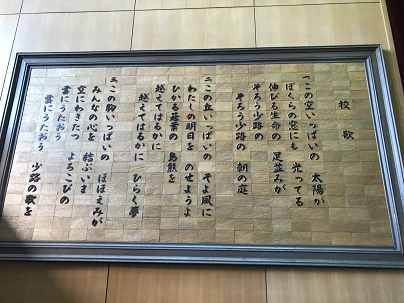 校歌
一、この空いっぱいの 太陽が
ぼくらの窓にも 光ってる
伸びる生命の 足並みが
そろう少路の
そろう少路の 朝の庭
二、この丘いっぱいの そよ風に
わたしの明日を のせようよ
ひかる若葉の 島熊を
越えてはるかに
越えてはるかに ひらく夢
三、この胸いっぱいの ほほえみが
みんなの心を 結ぶいま
空にわきたつ よろこびの
雲にうたおう
雲にうたおう 少路の歌を